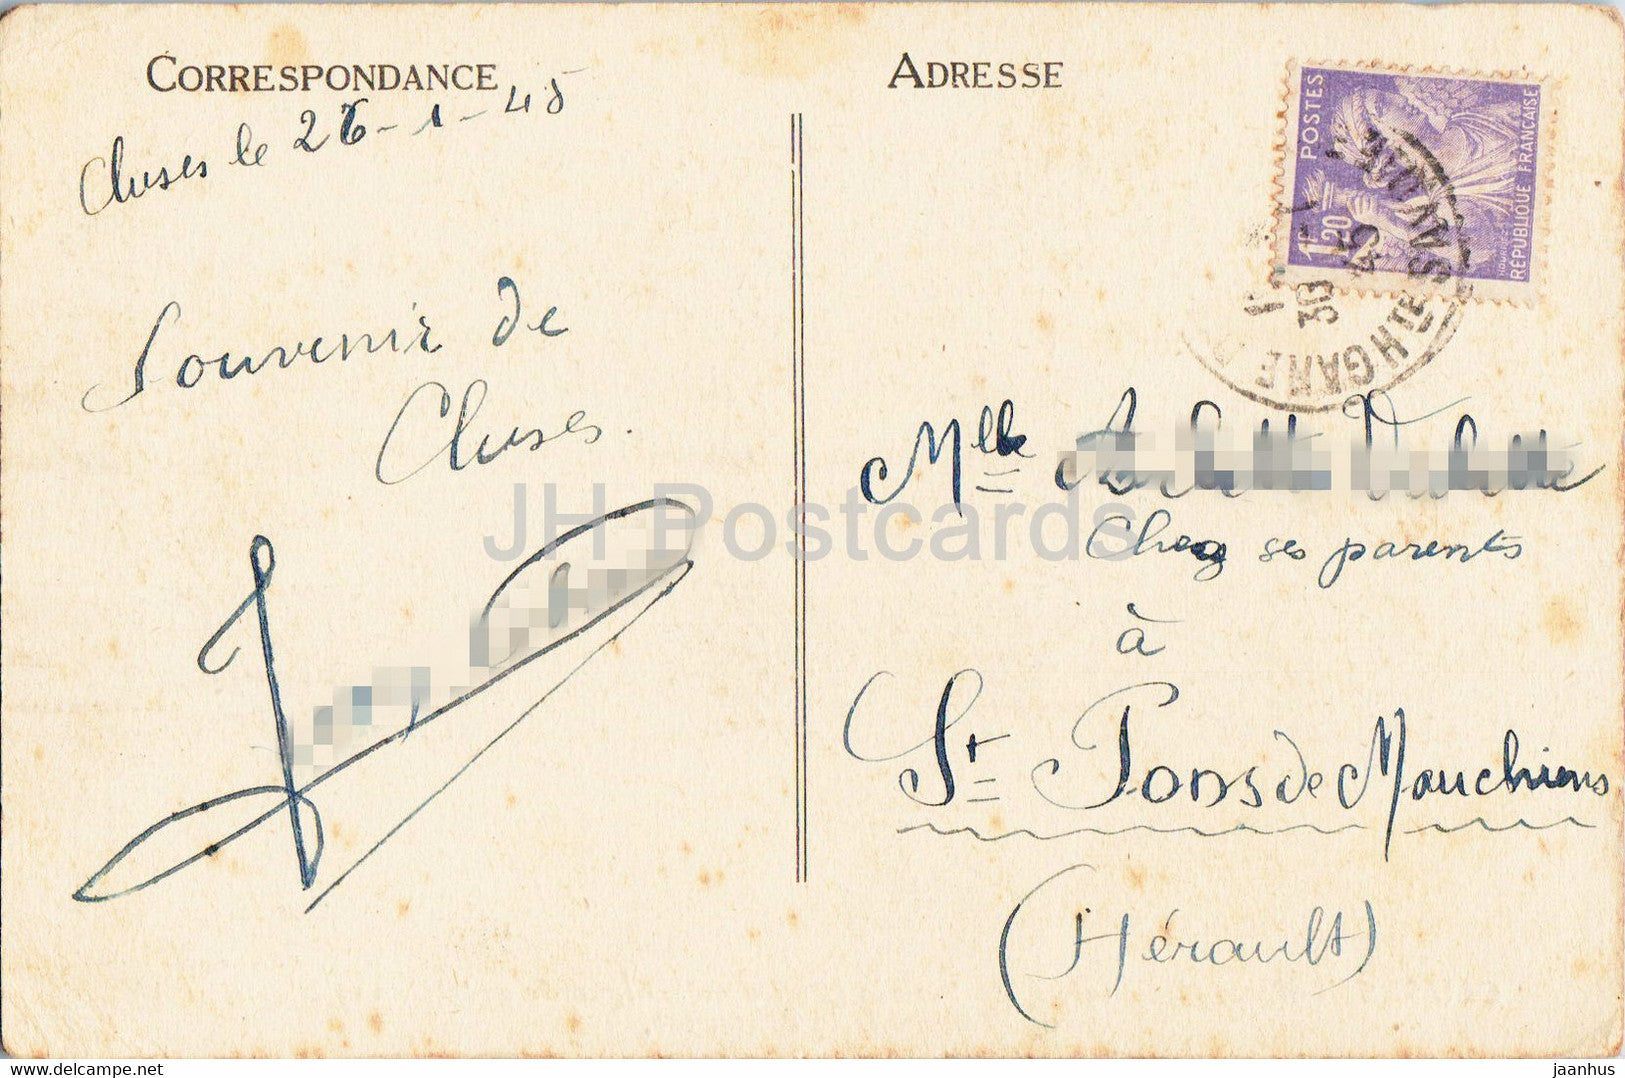 CORRESPONDANCE
Cluses le 26-1-45
Souvenir de
Cluses.
ADRESSE
POSTES
1F20
RÉPUBLIQUE FRANÇAISE
GARE
HTE SAVOIE
30
45
Mlle
Chez ses parents
à
St Pons de Mauchiens
(Hérault)
JH Postcards
delcampe.net
jaanhus